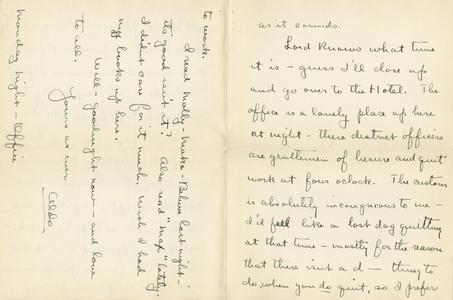 as it sounds.
Lord Knows what time
it is – guess I'll close up
and go over to the Hotel. The
office is a lonely place up here
at night – these district officers
are gentlemen of leisure and quit
work at four oclock. The custom
is absolutely incongruous to me –
I'd feel like a lost dog quitting
at that time – mostly for the reason
that there isnt a d— thing to
do, when you do quit, so I prefer
to work.
I read Molly-Make-Believe last night –
it's good isn't it? Also read "Mag" lately.
I didnt care for it much. Wish I had
my books up here.
Well goodnight now – and love
to all.
Yours as ever
Aldo
Monday night – Office